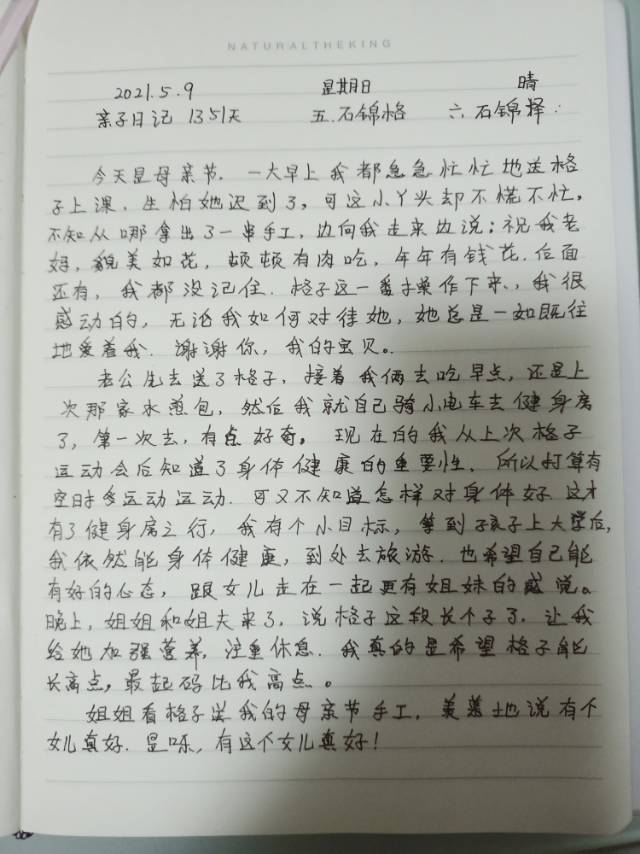 NATURALTHEKING
2021.5.9 星期日 晴
亲子日记 1351天 五.石锦格 六 石锦择
今天是母亲节.一大早上我都急急忙忙地送格
子上课.生怕她迟到了,可这小丫头却不慌不忙,
不知从哪拿出了一串手工,边向我走来边说:祝我老
妈,貌美如花,顿顿有肉吃,年年有钱花.后面
还有,我都没记住.格子这一番操作下来,我很
感动的,无论我如何对待她,她总是一如既往
地爱着我.谢谢你,我的宝贝。
老公先去送了格子,接着我俩去吃早点,还是上
次那家水煎包,然后我就自己骑小电车去健身房
了,第一次去,有点好奇。现在的我从上次格子
运动会后知道了身体健康的重要性.所以打算有
空时多运动运动.可又不知道怎样对身体好.这才
有了健身房之行,我有个小目标,等到孩子上大学后,
我依然能身体健康,到处去旅游.也希望自己能
有好的心态,跟女儿走在一起更有姐妹的感觉。
晚上,姐姐和姐夫来了,说格子这段长个子了.让我
给她加强营养,注重休息.我真的是希望格子能
长高点,最起码比我高点。
姐姐看格子送我的母亲节手工,羡慕地说有个
女儿真好.是呀,有这个女儿真好!